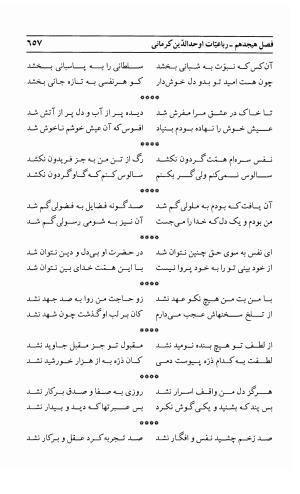 فصل هیجدهم ـ رباعیّات اوحدالدّین کرمانی ۶۵۷
آن کس که نبوّت به شبانی بخشد سلطانی را به پاسبانی بخشد
چون هست امید تو بدو دل خوش‌دار کو هر نفسی به تازه جانی بخشد
****
تا خاک در عشق مرا مفرش شد دیده پر از آب و دل پر از آتش شد
عیش خوش را نهاده بودم بنیاد افسوس که آن عیش خوشم ناخوش شد
****
نفس سره‌ام همّت گردون نکشد رگ از تن من به جز فریدون نکشد
سالوس نمی‌کنم ولی گر بکنم سالوس کنم که گاو گردون نکشد
****
آن یافت که بودم به ملولی گم شد صد گونه فضایل به فضولی گم شد
من بودم و یک دل که خدا را می‌جست آن نیز به شومی رسولی گم شد
****
ای نفس به سوی حق چنین نتوان شد در حضرت او بی‌دل و دین نتوان شد
از خود بینی تو را به خود پروا نیست با این همّت خدای بین نتوان شد
****
با من بت من هیچ نکو عهد نشد زو حاجت من روا به صد جهد نشد
از تلخ سخنهاش عجب می‌دارم کان بر لب او گذشت چون شهد نشد
****
از لطف تو هیچ بنده نومید نشد مقبول تو جز مقبل جاوید نشد
لطفت به کدام ذرّه پیوست دمی کان ذرّه به از هزار خورشید نشد
****
هرگز دل من واقف اسرار نشد روزی به صفا و صدق بر کار نشد
بس پند که بشنید و یکی گوش نکرد بس عبرتها که دید و بیدار نشد
****
صد زخم چشید نفس و افگار نشد صد تجربه کرد عقل و بر کار نشد